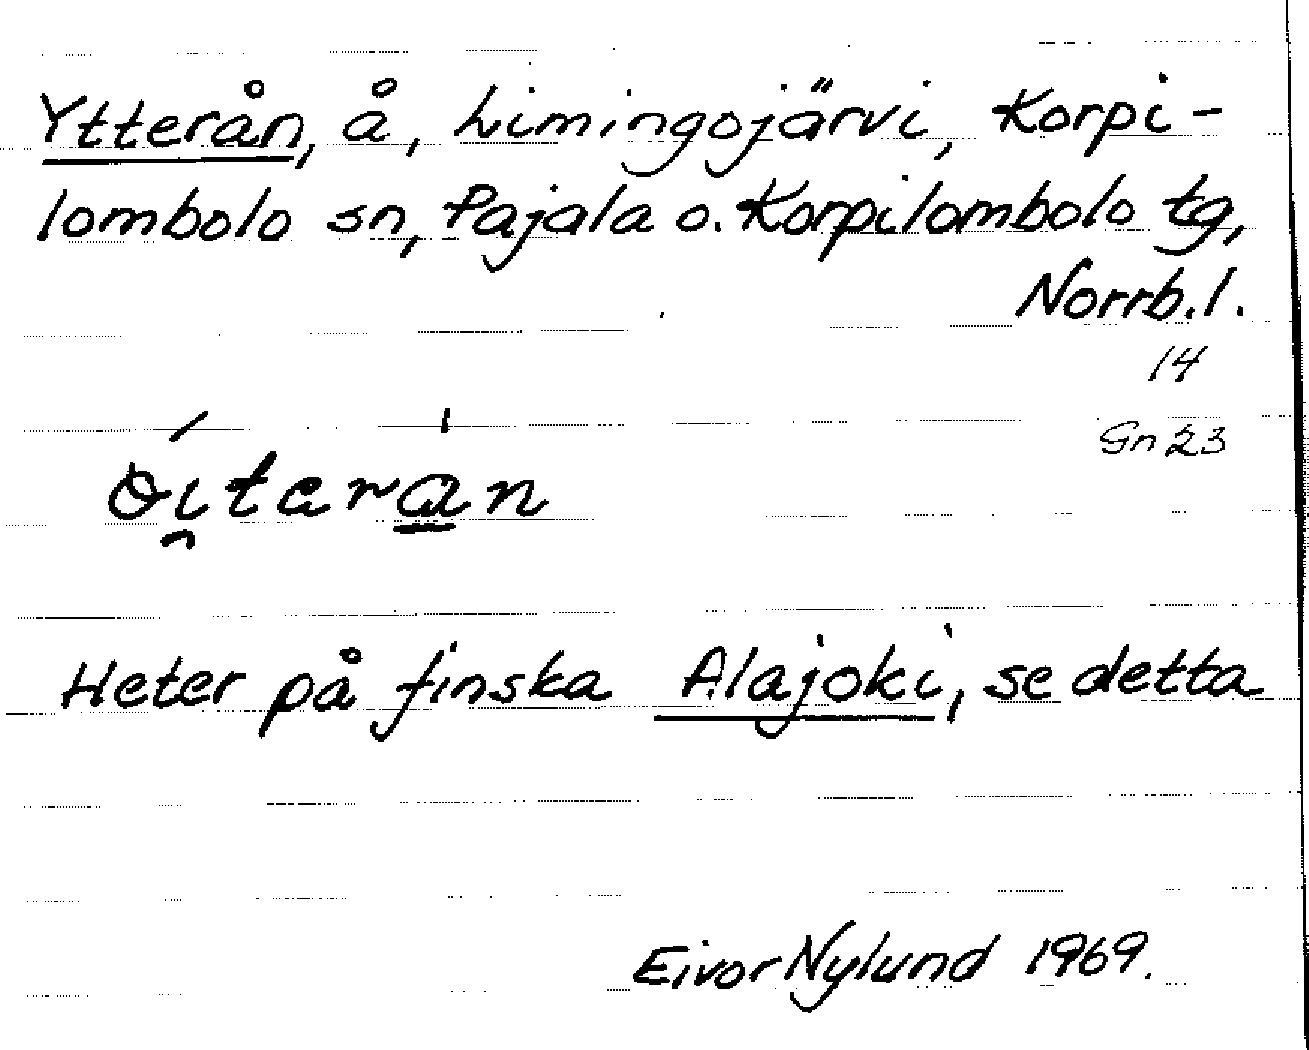 Ytterån, å, Limingojärvi, Korpi-
lombolo sn, Pajala o. Korpilombolo tg,
Norrb.l.
14
Gn 23
Heter på finska Alajoki, se detta
Eivor Nylund 1969.